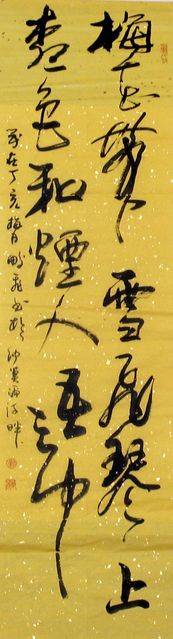 梅花帶雪飛琴上
柳色和煙入酒中
歲在丁亥梅月 書於 沙